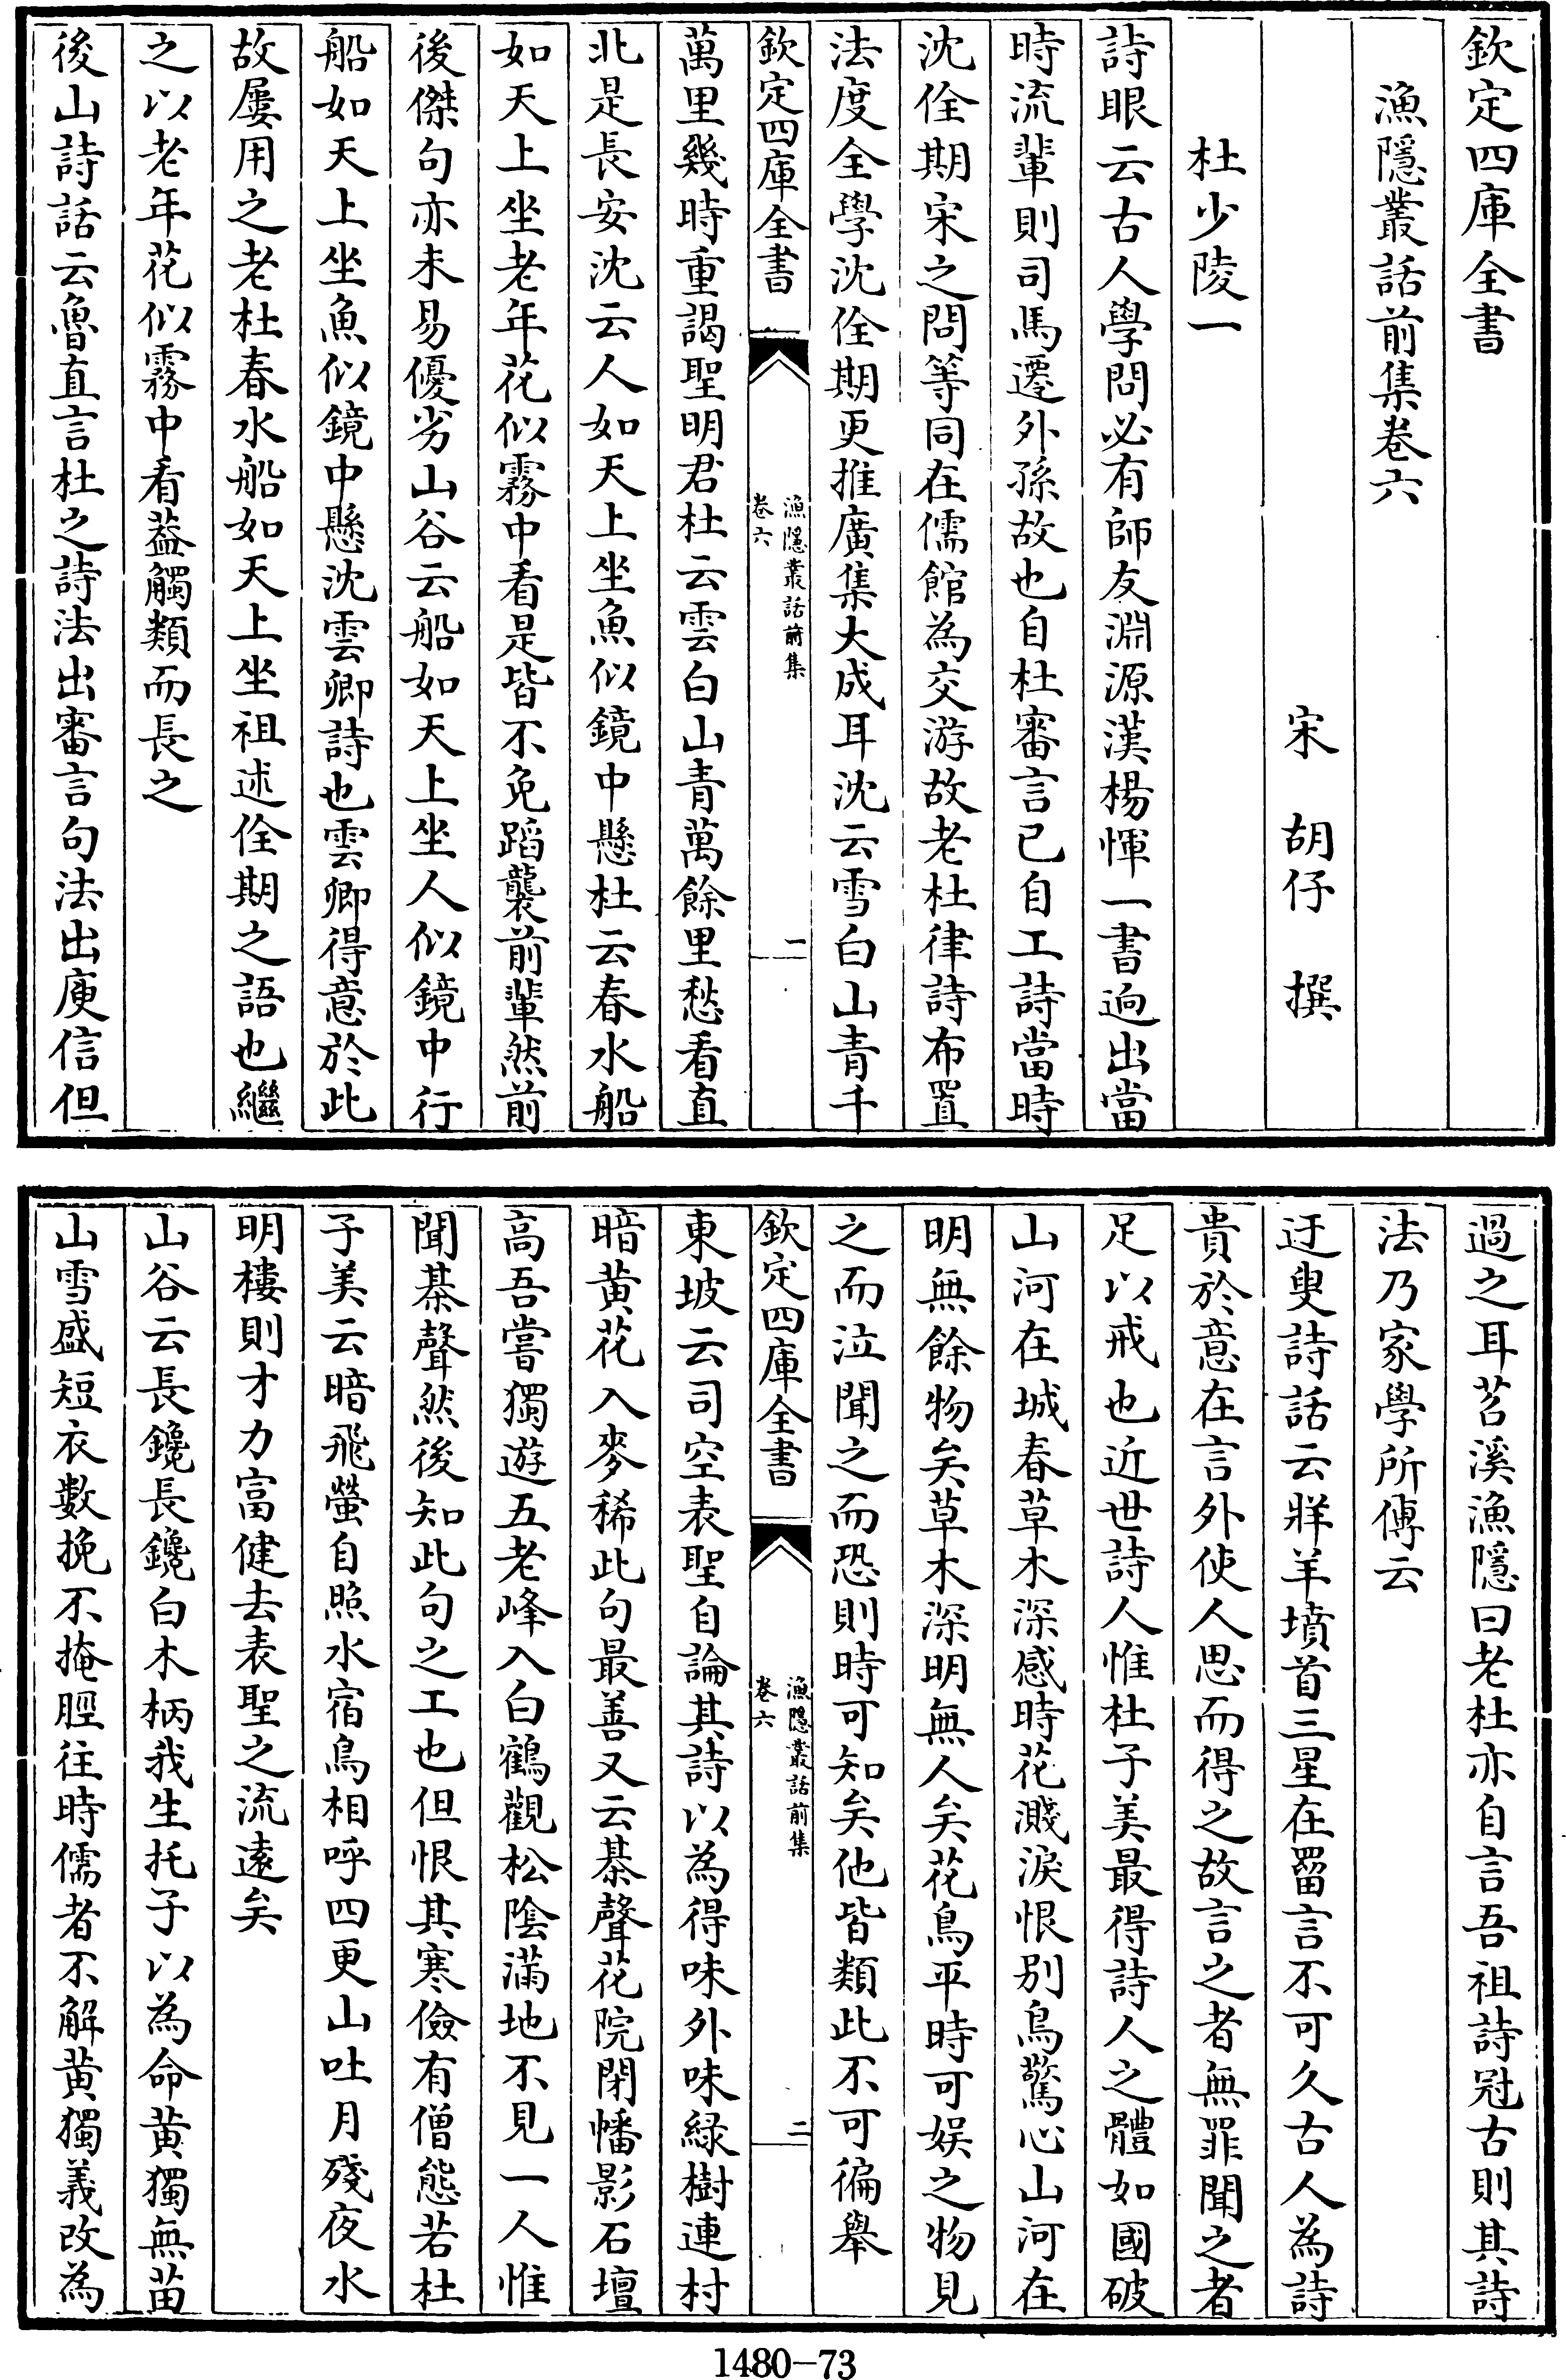 欽定四庫全書
漁隱叢話前集卷六
宋 胡仔 撰
杜少陵一
詩眼云古人學問必有師友淵源漢楊惲一書迥出當
時流輩則司馬遷外孫故也自杜審言已自工詩當時
沈佺期宋之問等同在儒館為交游故老杜律詩布置
法度全學沈佺期更推廣集大成耳沈云雪白山青千
欽定四庫全書
漁隱叢話前集
卷六
一
萬里幾時重謁聖明君杜云雲白山青萬餘里愁看直
北是長安沈云人如天上坐魚似鏡中懸杜云春水船
如天上坐老年花似霧中看是皆不免蹈襲前輩然前
後傑句亦未易優劣山谷云船如天上坐人似鏡中行
船如天上坐魚似鏡中懸沈雲卿詩也雲卿得意於此
故屢用之老杜春水船如天上坐祖述佺期之語也繼
之以老年花似霧中看葢觸類而長之
後山詩話云魯直言杜之詩法出審言句法出庾信但
過之耳苕溪漁隱曰老杜亦自言吾祖詩冠古則其詩
法乃家學所傳云
迂叟詩話云牂羊墳首三星在罶言不可久古人為詩
貴於意在言外使人思而得之故言之者無罪聞之者
足以戒也近世詩人惟杜子美最得詩人之體如國破
山河在城春草木深感時花濺淚恨別鳥驚心山河在
明無餘物矣草木深明無人矣花鳥平時可娛之物見
之而泣聞之而恐則時可知矣他皆類此不可徧舉
欽定四庫全書
漁隱叢話前集
卷六
二
東坡云司空表聖自論其詩以為得味外味緑樹連村
暗黄花入麥稀此句最善又云棊聲花院閉幡影石壇
高吾嘗獨遊五老峰入白鶴觀松隂滿地不見一人惟
聞棊聲然後知此句之工也但恨其寒儉有僧態若杜
子美云暗飛螢自照水宿鳥相呼四更山吐月殘夜水
明樓則才力富健去表聖之流遠矣
山谷云長鑱長鑱白木柄我生托子以為命黄獨無苗
山雪盛短衣數挽不掩脛往時儒者不解黄獨義改為
1480-73